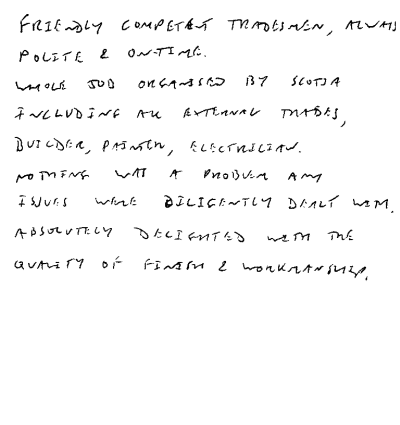 FRIENDLY COMPETENT TRADESMEN, ALWAYS
POLITE & ON-TIME.
WHOLE JOB ORGANISED BY SCOTIA
INCLUDING ALL EXTERNAL TRADES,
BUILDER, PAINTER, ELECTRICIAN.
NOTHING WAS A PROBLEM ANY
ISSUES WERE DILIGENTLY DEALT WITH.
ABSOLUTELY DELIGHTED WITH THE
QUALITY OF FINISH & WORKMANSHIP.